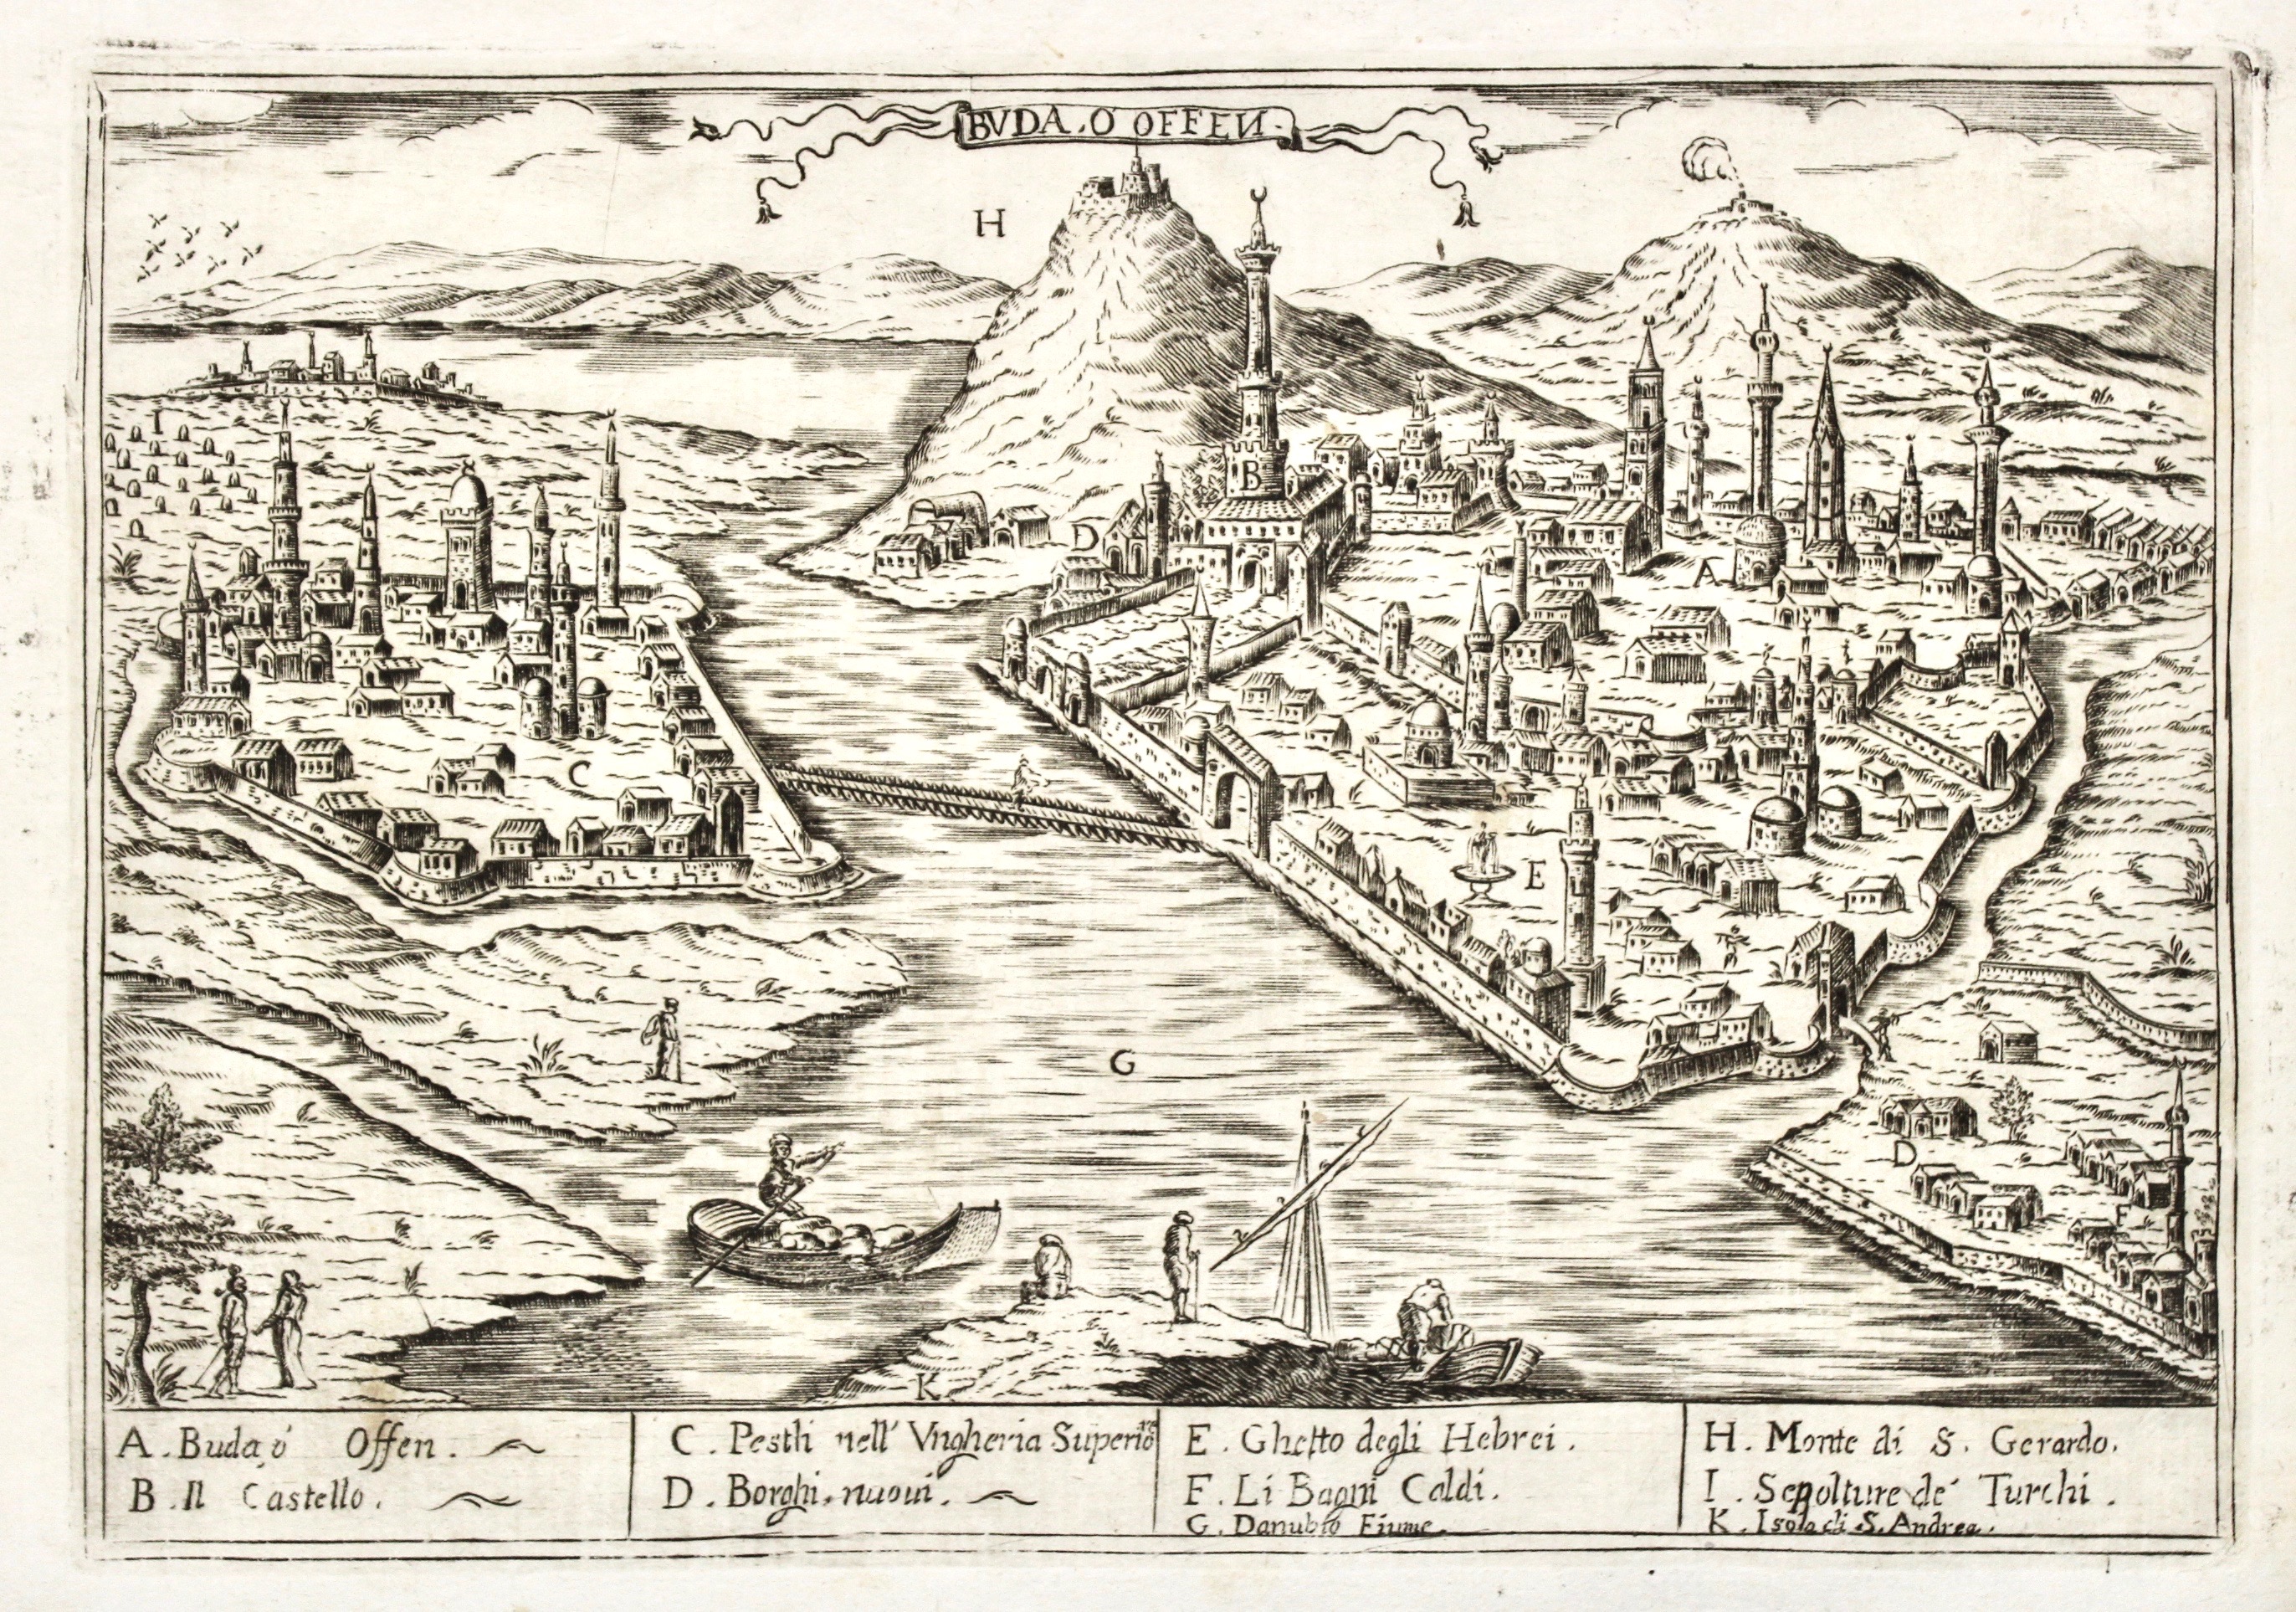 BVDA. O OFFEN.
H
I
B
D
A
C
E
G
D
F
K
A. Buda, ó Offen.
B. Il Castello.
C. Pesth nell' Vngheria Superiore
D. Borghi. nuoui.
E. Ghetto degli Hebrei.
F. Li Bagni Caldi.
G. Danubio Fiume.
H. Monte di S. Gerardo.
I. Sepolture de' Turchi.
K. Isola di S. Andrea.